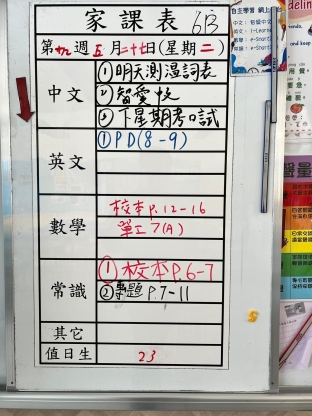 家課表 6B
第十九週 五月二十七日(星期二)
中文
①明天測温詞表
②智愛中文
③下星期考口試
英文
①PD(8-9)
數學
校本P.12-16
單工7(A)
常識
①校本P.6-7
②專題P.7-11
其它
值日生
23
自主學習 網上